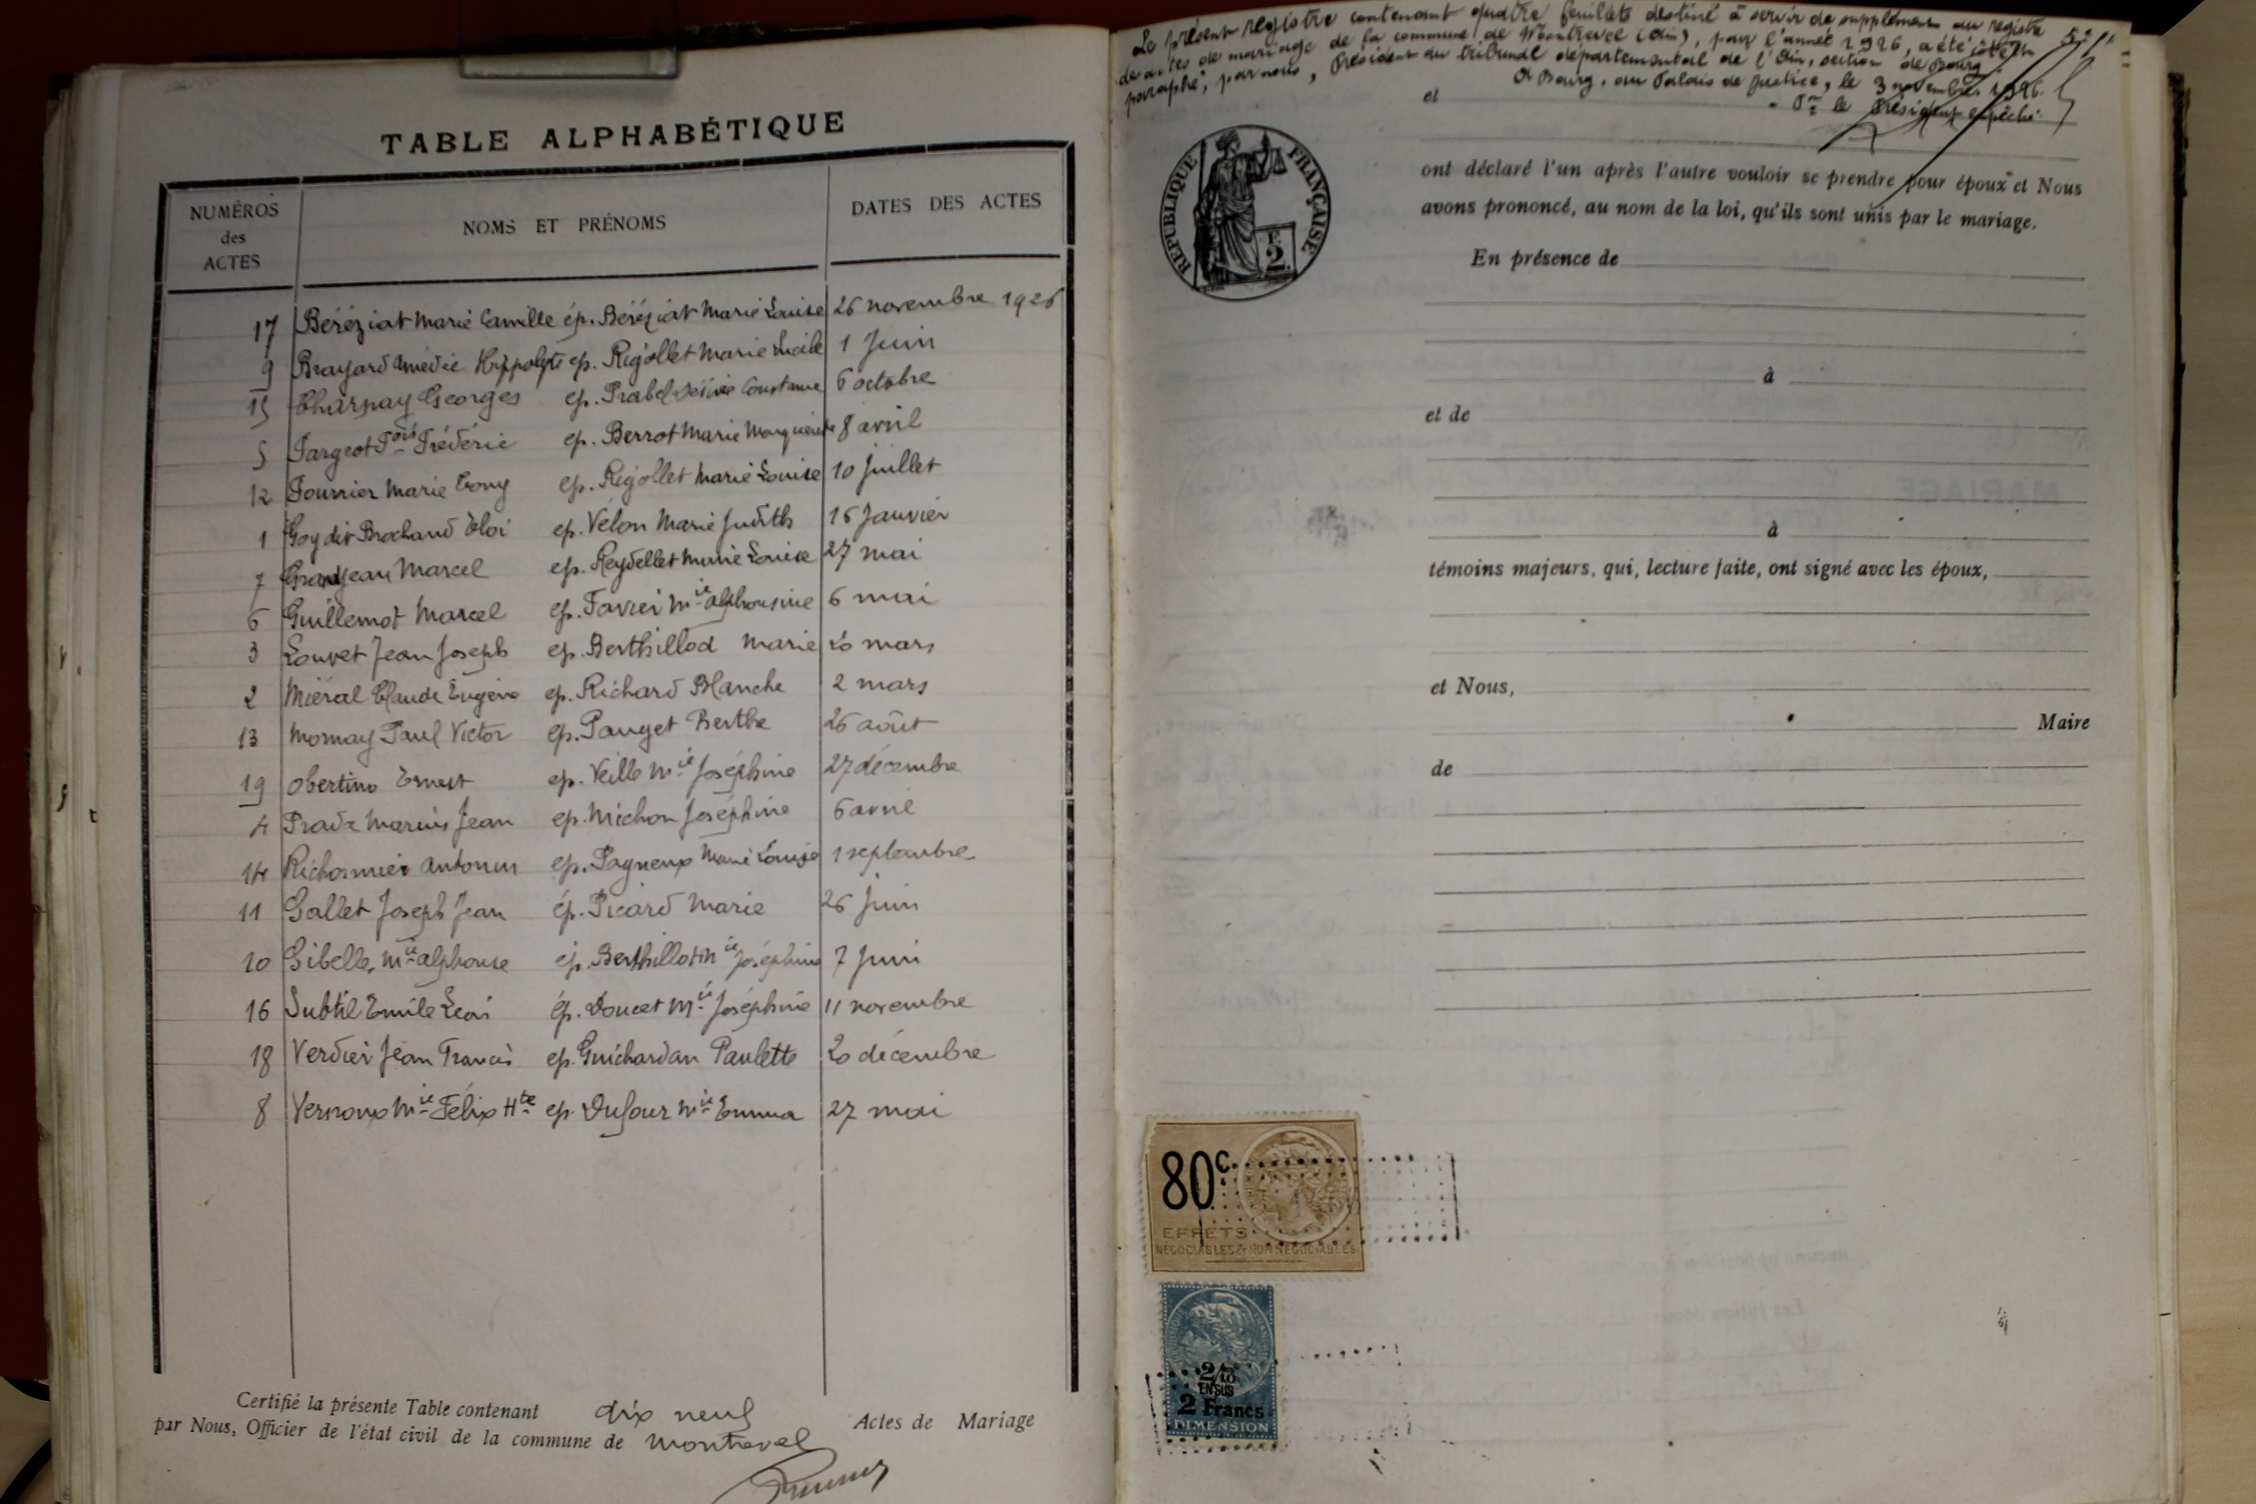 TABLE ALPHABÉTIQUE
NUMÉROS des ACTES
NOMS ET PRÉNOMS
DATES DES ACTES
17 Béréziat Marie Camille ép. Béréziat Marie Louise 26 novembre 1926
9 Brayard Amédée Hippolyte ep. Rigollet Marie Lucile 1 Juin
15 Charnay Georges ep. Prabel Désirée Constance 6 octobre
5 Fargeot Fois Frédéric ep. Berrot Marie Marguerite 8 avril
12 Fournier Marie Tony ep. Rigollet Marie Louise 10 Juillet
1 Goy dit Brochand Eloi ep. Vélon Marie Judith 16 Janvier
7 Grandjean Marcel ep. Reydellet Marie Louise 27 mai
6 Guillemot Marcel ep. Favier Mie Alphonsine 6 mai
3 Louvet Jean Joseph ep. Berthillod Marie 20 mars
2 Miéral Claude Eugène ep. Richard Blanche 2 mars
13 Mornay Paul Victor ep. Pauget Berthe 26 août
19 Obertino Ernest ep. Veille Mie Joséphine 27 décembre
4 Prada Marius Jean ep. Michon Joséphine 6 avril
14 Richonnier Antonin ep. Pagneux Marie Louise 1 septembre
11 Sallet Joseph Jean ép. Picard Marie 26 Juin
10 Sibelle Mie Alphonse ep. Berthillot Mie Joséphine 7 Juin
16 Subtil Emile Léon ép. Doucet Mie Joséphine 11 novembre
18 Verdier Jean Francis ep. Guichardan Paulette 20 décembre
8 Vernoux Mie Félix Hte ep. Dufour Mie Emma 27 mai
Certifié la présente Table contenant dix neuf Actes de Mariage
par Nous, Officier de l'état civil de la commune de Montrevel
Le présent registre contenant quatre feuillets destiné à servir de supplément au registre
des actes de mariage de la commune de Montrevel (Ain), pour l'année 1926, a été coté et
paraphé, par nous, Président du tribunal départemental de l'Ain, section de Bourg
A Bourg, au Palais de Justice, le 3 novembre 1926.
Pr le Président empêché
et
RÉPUBLIQUE FRANÇAISE
F. 2.
ont déclaré l'un après l'autre vouloir se prendre pour époux et Nous
avons prononcé, au nom de la loi, qu'ils sont unis par le mariage.
En présence de
à
et de
à
témoins majeurs, qui, lecture faite, ont signé avec les époux,
et Nous,
Maire
de
80c.
EFFETS
NÉGOCIABLES & NON NÉGOCIABLES
2/10
EN SUS
2 Francs
DIMENSION